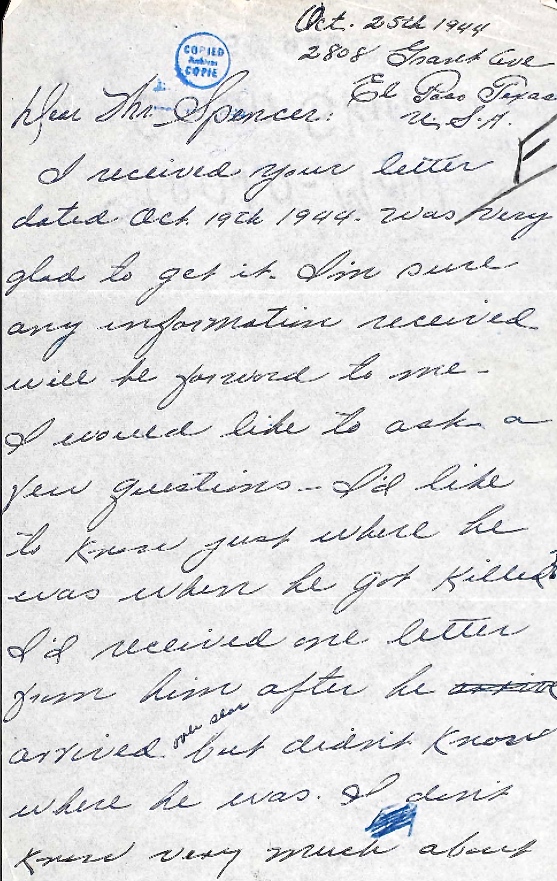 Oct. 25th 1944
2808 Grant Ave
El Paso Texas
U.S.A.
COPIED
COPIE
Dear Mr. Spencer:
I received your letter
dated Oct. 19th 1944. Was very
glad to get it. I'm sure
any information received
will be forword to me-
I would like to ask a
few questions - I'd like
to know just where he
was when he got killed
I'd received one letter
from him after he
arrived over seas but didn't know
where he was. I don't
know very much about